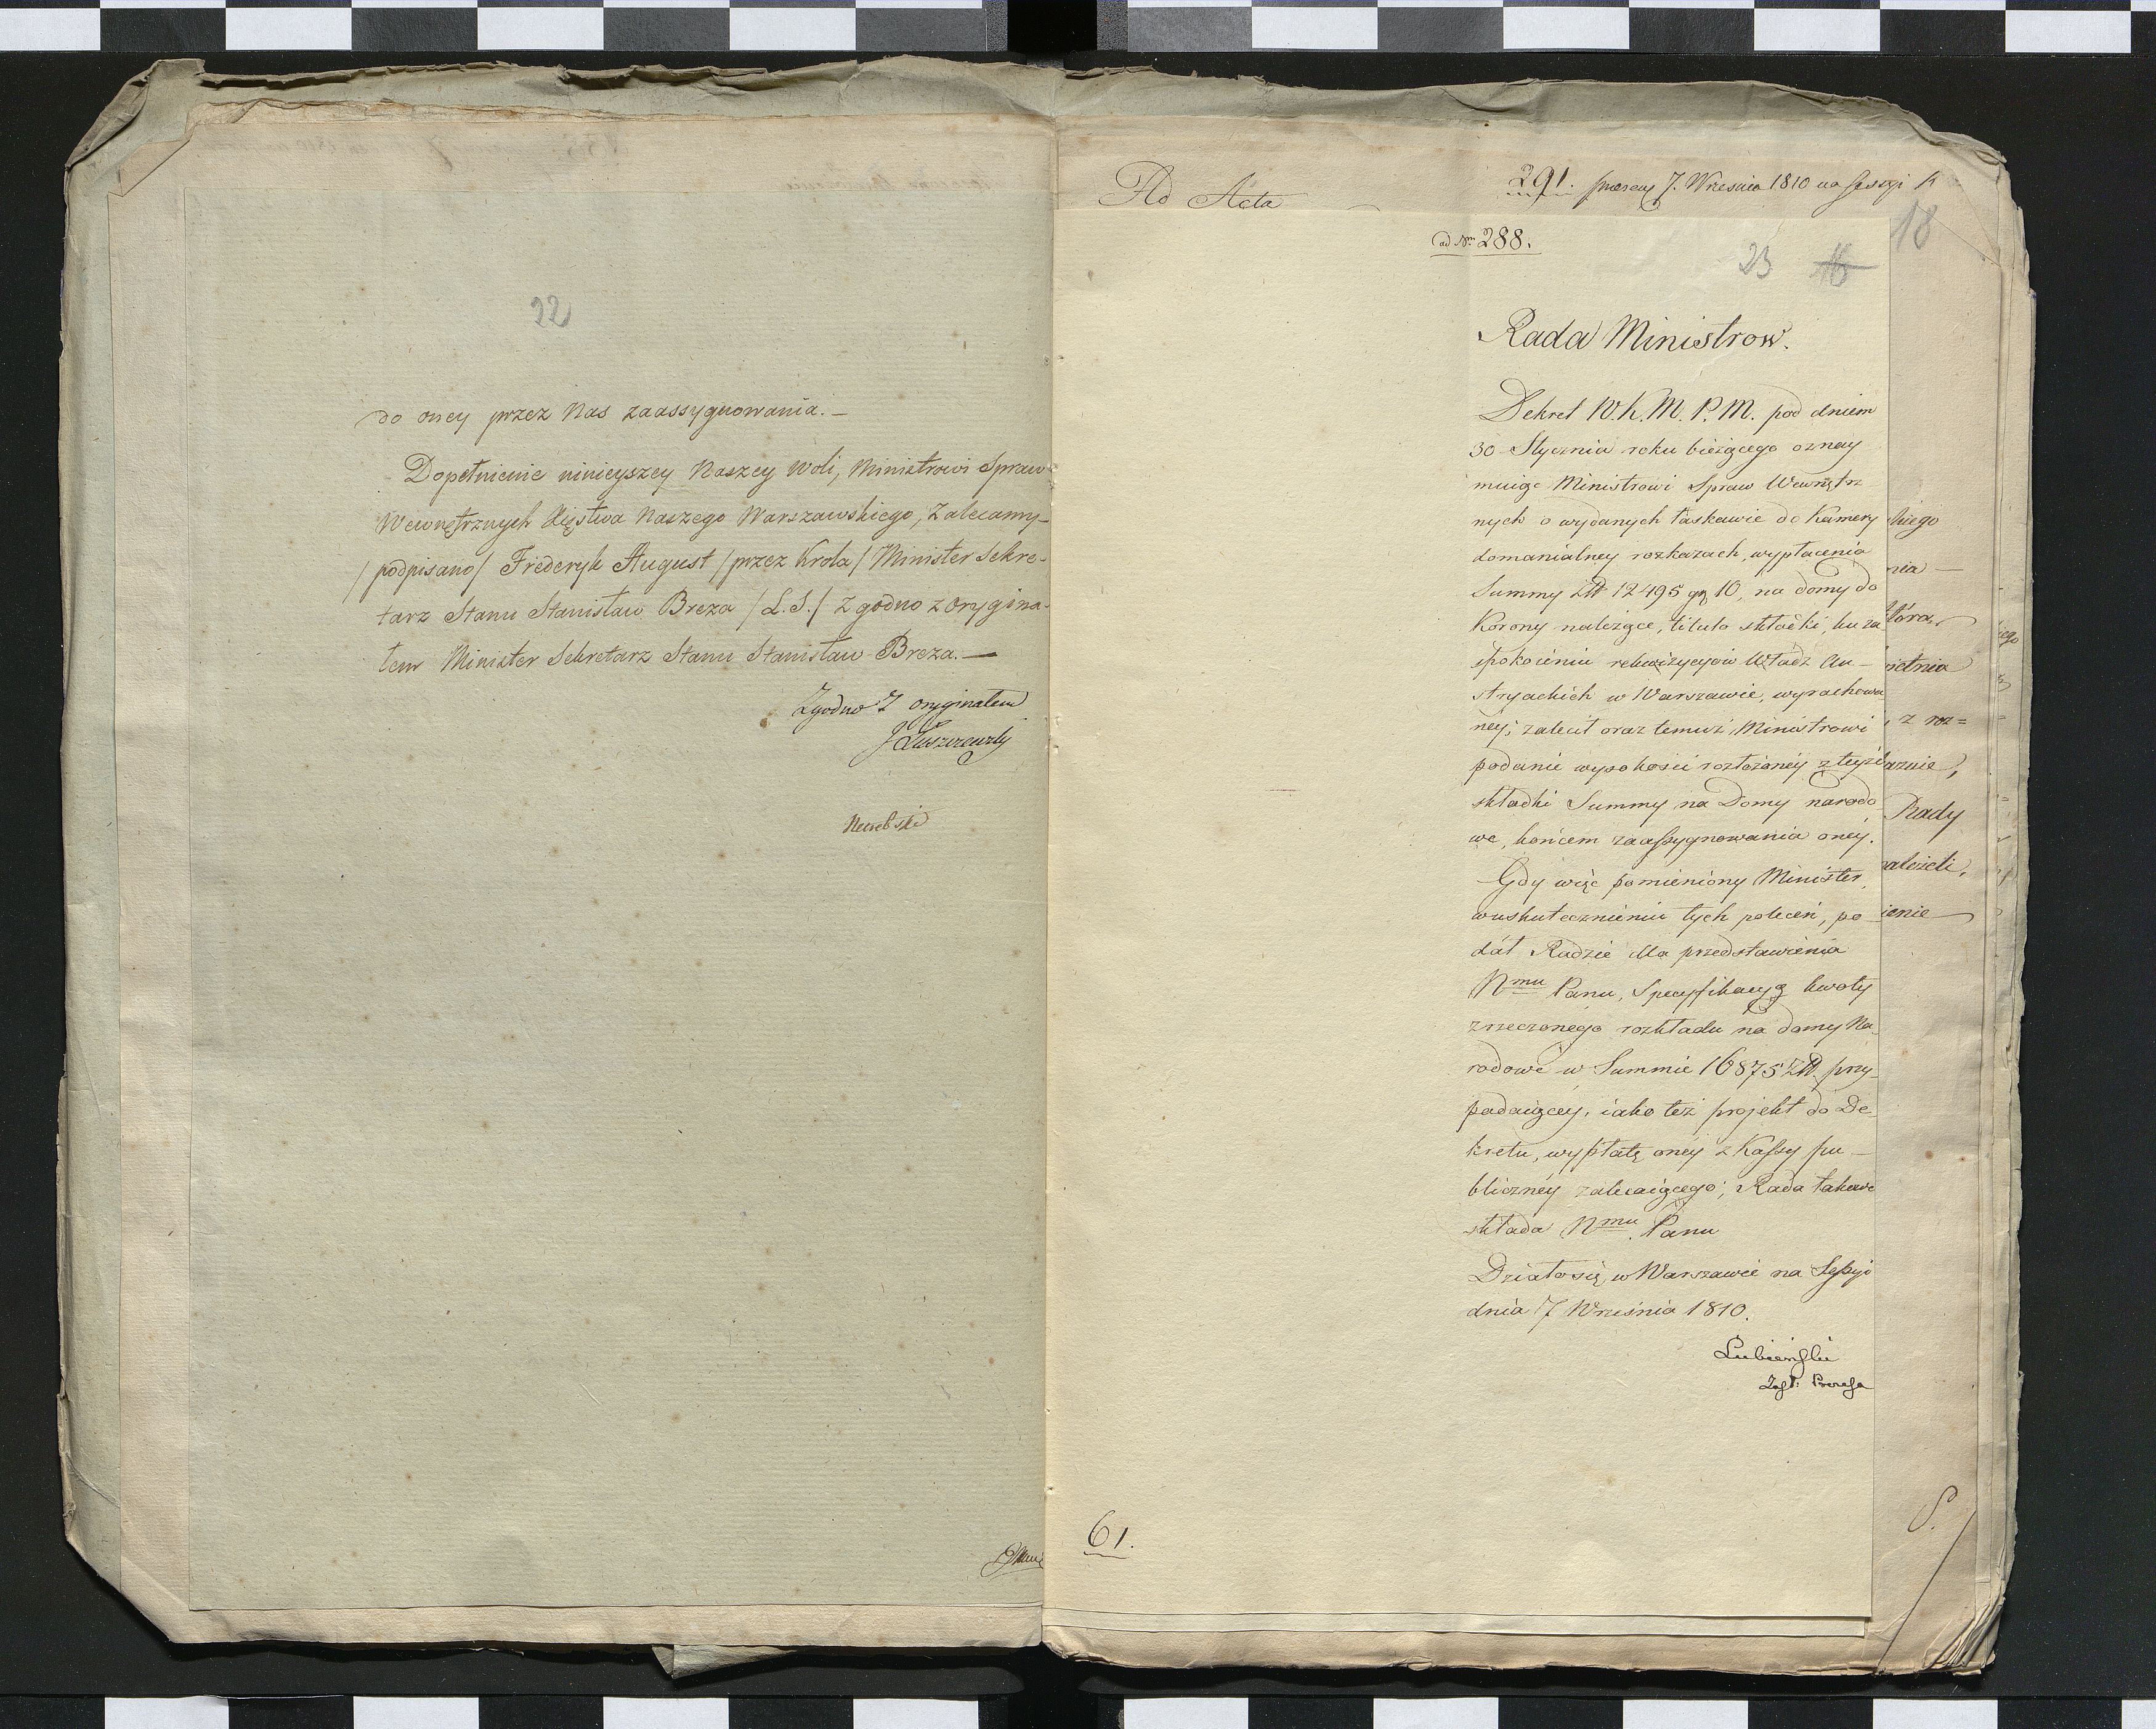 22
do oney przez Nas zaassygnowania. —
Dopełnienie ninieyszey Naszey woli, Ministrowi Spraw
Wewnętrznych Xięstwa Naszego Warszawskiego, Zalecamy —
/podpisano/ Frideryk August /przez Krola/ Minister Sekre-
tarz Stanu Stanisław Breza /L.S./ Zgodno z orygina-
łem Minister Sekretarz Stanu Stanisław Breza. —
Zgodno z oryginałem
J Łuszczewski
Ad Acta
291. 7. Wrzesnia 1810 na Sessyi
18
ad Nrm 288.
23 16
Rada Ministrow.
Dekret W. K. M. P. M. pod dniem
30 Stycznia roku bieżącego oznay
muiąc Ministrowi Spraw Wewnętrz
nych o wydanych łaskawie do Kamery
domanialney rozkazach, wypłacenia
Summy Złł 12495 gr 10, na domy do
Korony należące, titulo składki, ku za
spokoieniu rekwizycyow Władz Au-
stryackich w Warszawie, wyrachowa
ney; zalecił oraz temuż Ministrowi
podanie wysokości rozłożoney z teyże
składki Summy na Domy narodo
we, końcem zaassygnowania oney.
Gdy więc pomieniony Minister,
w uskutecznieniu tych poleceń, po
dał Radzie dla przedstawienia
Nmu Panu, Specyfikacyą kwoty
z rzeczonego rozkładu na domy Na
rodowe w Summie 16875 Złł. przy-
padaiącey, iako też projekt do De
kretu, wypłatę oney z Kassy pu-
bliczney zalecaiącego; Rada takowe
składa Nmu Panu
Działo się w Warszawie na Sessyi
dnia 7 Września 1810.
Lubieński
Zast: Prezesa
61.
kiego
nia —
tóra,
ietnia
, z roz=
aznie,
Rady
ależeli,
ienie